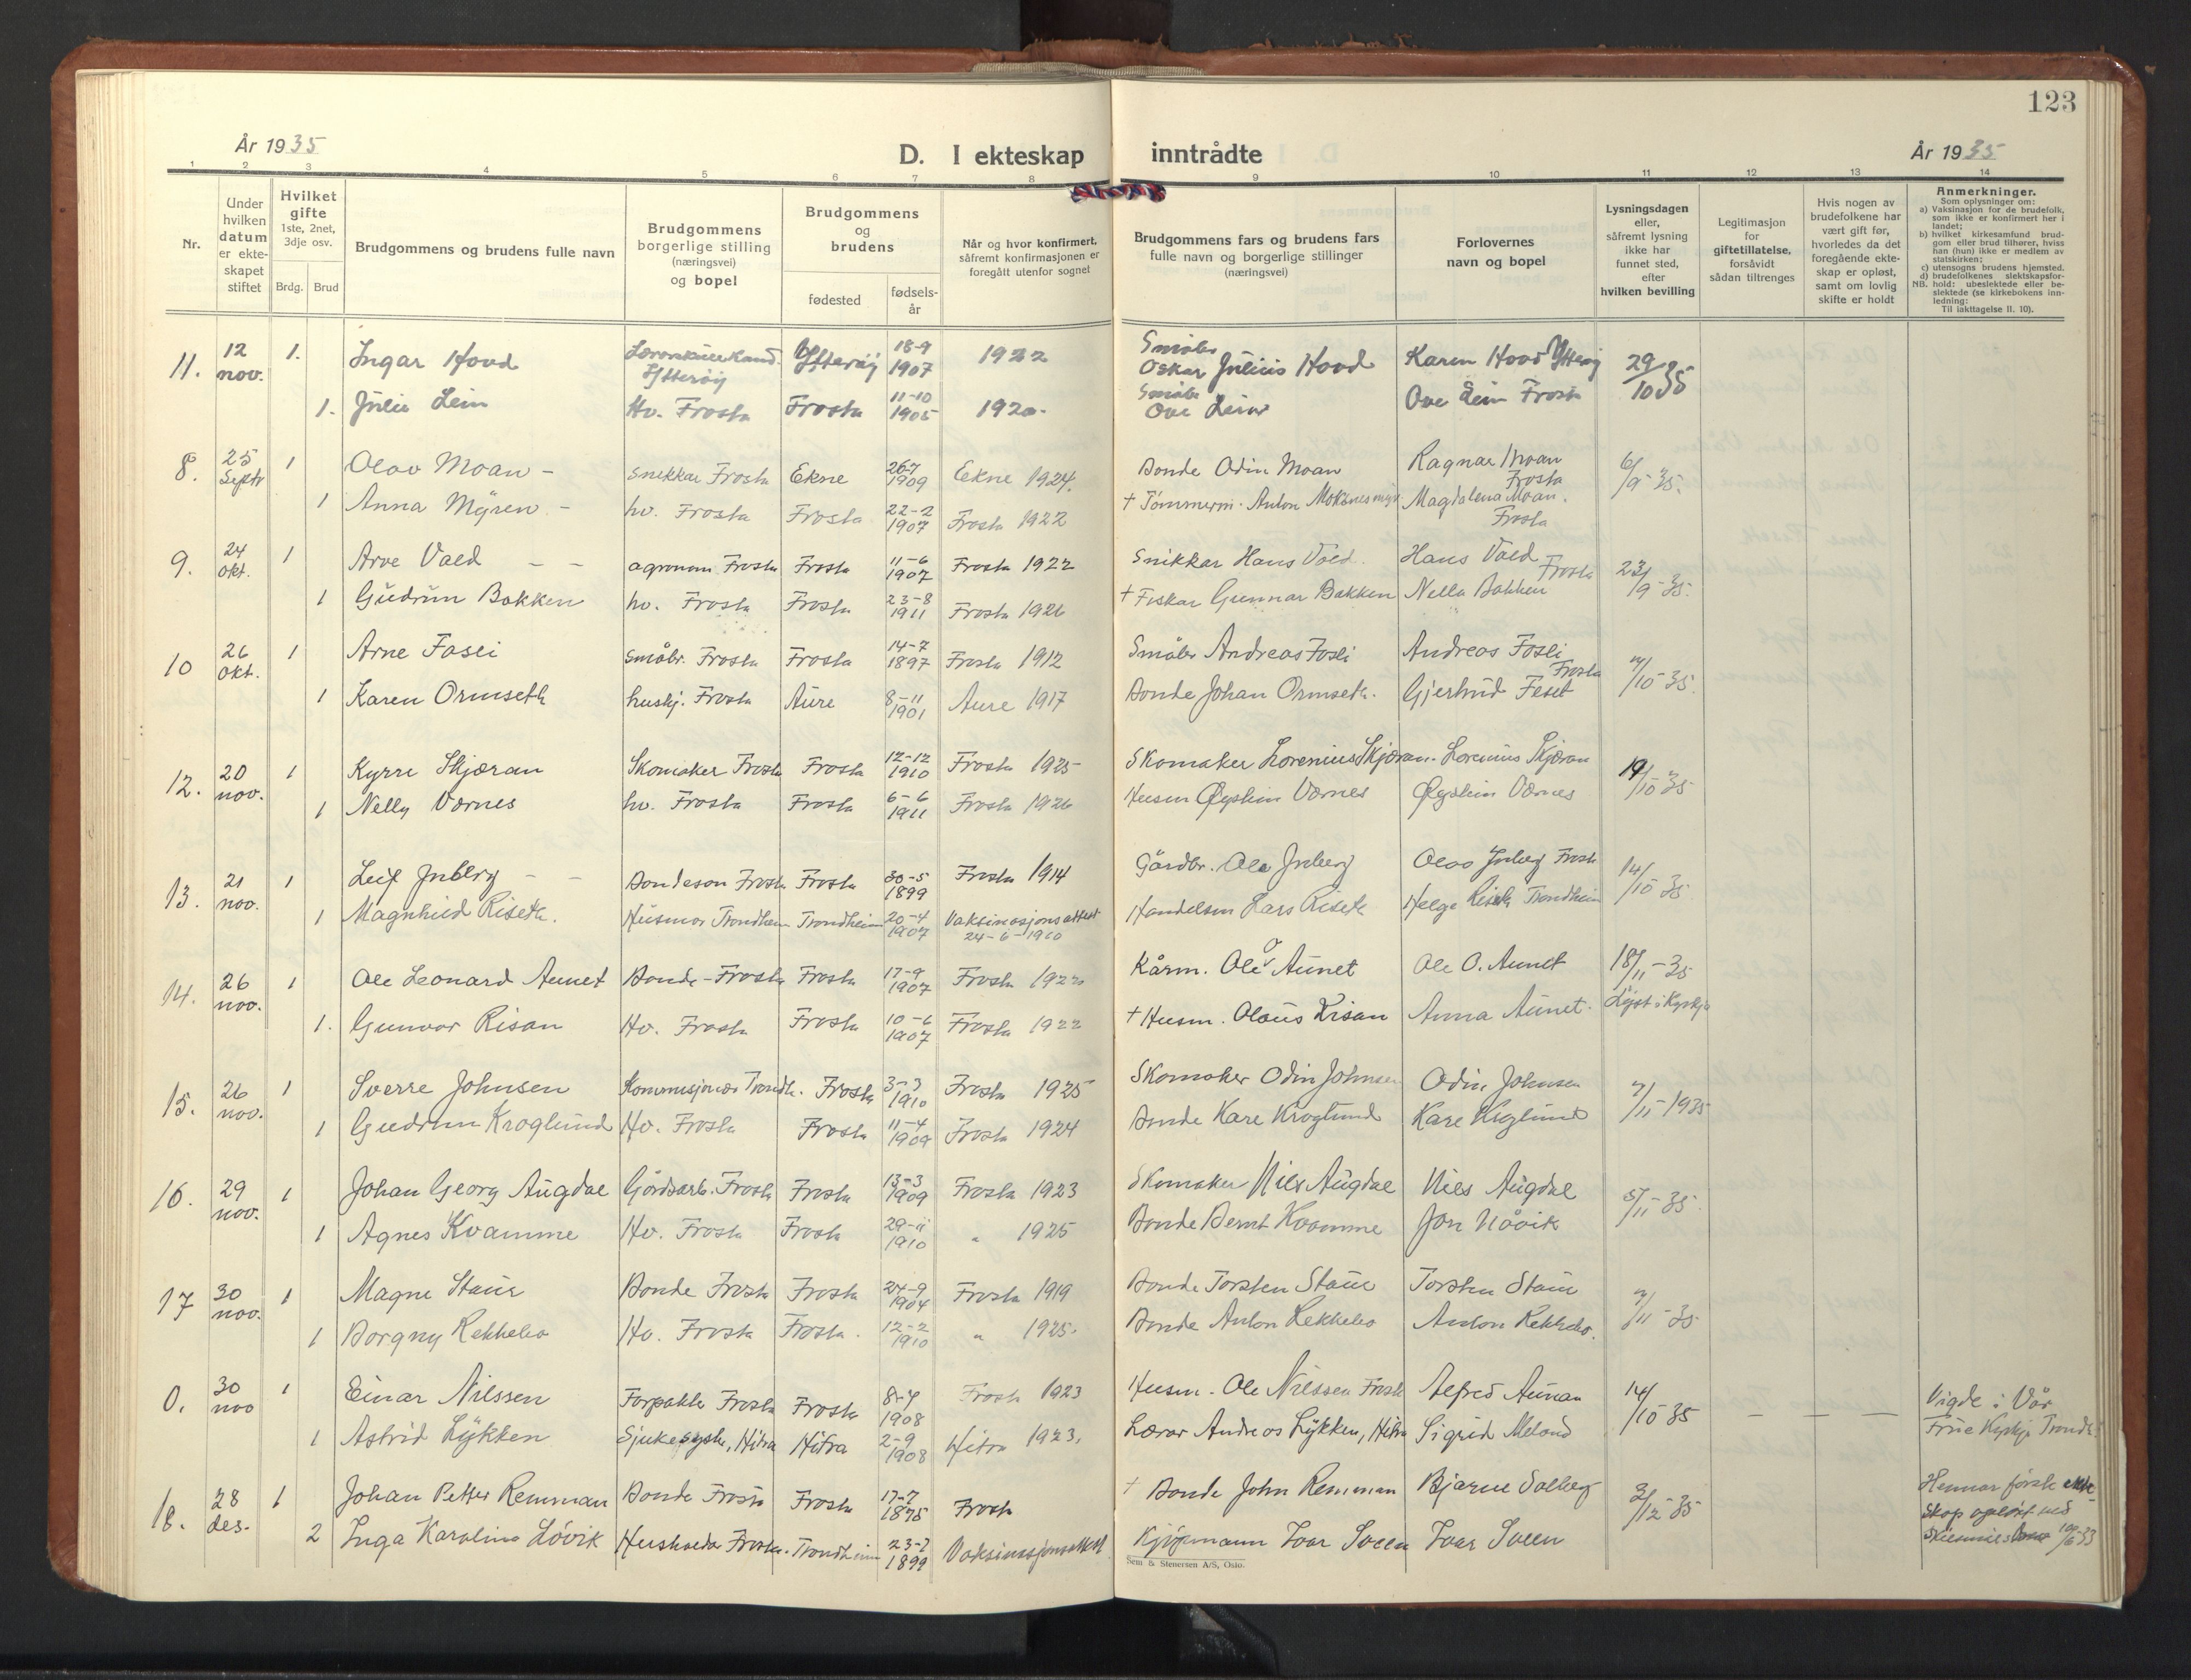 123
År 1935
D. I ekteskap inntrådte
År 1935
1 2 3 4 5 6 7 8 9 10 11 12 13 14
Nr.
Under hvilken datum er ekteskapet stiftet
Hvilket gifte 1ste, 2net, 3dje osv.
Brdg. Brud
Brudgommens og brudens fulle navn
Brudgommens borgerlige stilling (næringsvei) og bopel
Brudgommens og brudens
fødested
fødselsår
Når og hvor konfirmert, såfremt konfirmasjonen er foregått utenfor sognet
Brudgommens fars og brudens fars fulle navn og borgerlige stillinger (næringsvei)
Forlovernes navn og bopel
Lysningsdagen eller, såfremt lysning ikke har funnet sted, efter hvilken bevilling
Legitimasjon for giftetillatelse, forsåvidt sådan tiltrenges
Hvis nogen av brudefolkene har vært gift før, hvorledes da det foregående ekteskap er opløst, samt om lovlig skifte er holdt
Anmerkninger.
Som oplysninger om:
a) Vaksinasjon for de brudefolk, som ikke er konfirmert her i landet;
b) hvilket kirkesamfund brudgom eller brud tilhører, hviss han (hun) ikke er medlem av statskirken;
c) utensogns brudens hjemsted.
d) brudefolkenes slektskapsforhold: ubeslektede eller beslektede (se kirkebokens innledning:
NB.
Til iakttagelse II. 10).
11. 12 nov. 1. Ingar Hovd Ytterøy Ytterøy 18-9 1907 1922 Småbr Oskar Julius Hovd Karen Hovd Ytterøy 29/10 35
1. Julie Lein Hv. Frosta Frosta 11-10 1905 1920. Småbr Ove Lein Ove Lein Frosta
8. 25 Septr 1 Olav Moan - Snekkar Frosta Ekne 26-7 1909 Ekne 1924. Bonde Odin Moan Ragnar Moan Frosta 6/9-35.
1 Anna Myren - hv. Frosta Frosta 22-2 1907 Frosta 1922 † Tømmerm. Anton Moksnesmyr. Magdalena Moan. Frosta
9. 24 okt. 1 Arve Vold - - agronom Frosta Frosta 11-6 1907 Frosta 1922 Snikkar Hans Vold. Hans Vold Frosta 23/9-35.
1 Gudrun Bakken hv. Frosta Frosta 23-8 1911 Frosta 1926 † Fiskar Gunnar Bakken Nella Bakken
10 26 okt. 1 Arne Fosli Småbr. Frosta Frosta 14-7 1897 Frosta 1912 Småbr Andreas Fosli Andreas Fosli Frosta 7/10-35.
1 Karen Ormseth huskj. Frosta Aure 8-11 1901 Aure 1917 Bonde Johan Ormseth. Gjertrud Feset
12. 20 nov. 1 Kyrre Skjæran Skomaker Frosta Frosta 12-12 1910 Frosta 1925 Skomaker Lorenius Skjæran. Lorenius Skjæran 19/10 35
1 Nelly Værnes hv. Frosta Frosta 6-6 1911 Frosta 1926 Husm Øystein Værnes Øystein Værnes
13. 21 nov. 1 Leif Inberg - - Bondeson Frosta Frosta 30-5 1899 Frosta 1914 Gårdbr. Ole Inberg Olav Inberg Frosta 14/10 35
1 Magnhild Riseth. Husmor Trondheim Trondheim 20-4 1907 Vaksinasjonsattest 24-6-1910 Handelsm Lars Riseth Helge Riseth Trondheim
14. 26 nov. 1 Ole Leonard Aunet Bonde - Frosta Frosta 17-9 1907 Frosta 1922 Kårm. Ole O Aunet Ole O. Aunet 18/11-35
1. Gunvor Risan Hv. Frosta Frosta 10-6 1907 Frosta 1922 † Husm. Olaus Risan Anna Aunet. Lyst i Kyrkja
15. 26 nov. 1 Sverre Johnsen Kommisjonær Trondh. Frosta 3-3 1910 Frosta 1925 Skomaker Odin Johnsen Odin Johnsen 7/11-1935
1 Gudrun Kroglund Hv. Frosta Frosta 11-4 1909 Frosta 1924 Bonde Kare Kroglund Kare Kroglund
16. 29 nov. 1 Johan Georg Augdal Gårdsarb. Frosta Frosta 13-3 1909 Frosta 1923 Skomaker Nils Augdal Nils Augdal 5/11-35.
1 Agnes Kvamme Hv. Frosta Frosta 29-11 1910 " 1925 Bonde Bernt Kvamme Jon Nåvik
17 30 nov. 1 Magne Staur Bonde Frosta Frosta 24-9 1904 Frosta 1919 Bonde Torsten Staur Torsten Staur 7/11-35
1 Borgny Rekkebo Hv. Frosta Frosta. 12-2 1910 " 1925. Bonde Anton Rekkebo Anton Rekkebo.
0. 30 nov 1 Einar Nilssen Forpakter Frosta Frosta 8-4 1908 Frosta 1923 Husm. Ole Nilssen Frosta Alfred Aunan 14/10 35 — — — Vigde i Vår
1 Astrid Lykken Sjukesyster, Hitra Hitra 2-9 1908 Hitra 1923. Lærar Andreas Lykken, Hitra Sigrid Meland Frue Kyrkje Trondh.
18. 28 des. 1 Johan Petter Remman Bonde Frosta Frosta 17-7 1875 Frosta † Bonde John Remman Bjarne Solberg 3/12-35 Hennar første ekte-
2 Inga Karoline Løvik Hushaldar Frosta. Trondheim 23-7 1899 Vaksinasjonsattest Kjøpmann Ivar Sveen Ivar Sveen skap opløst ved
Sem & Stenersen A/S, Oslo.